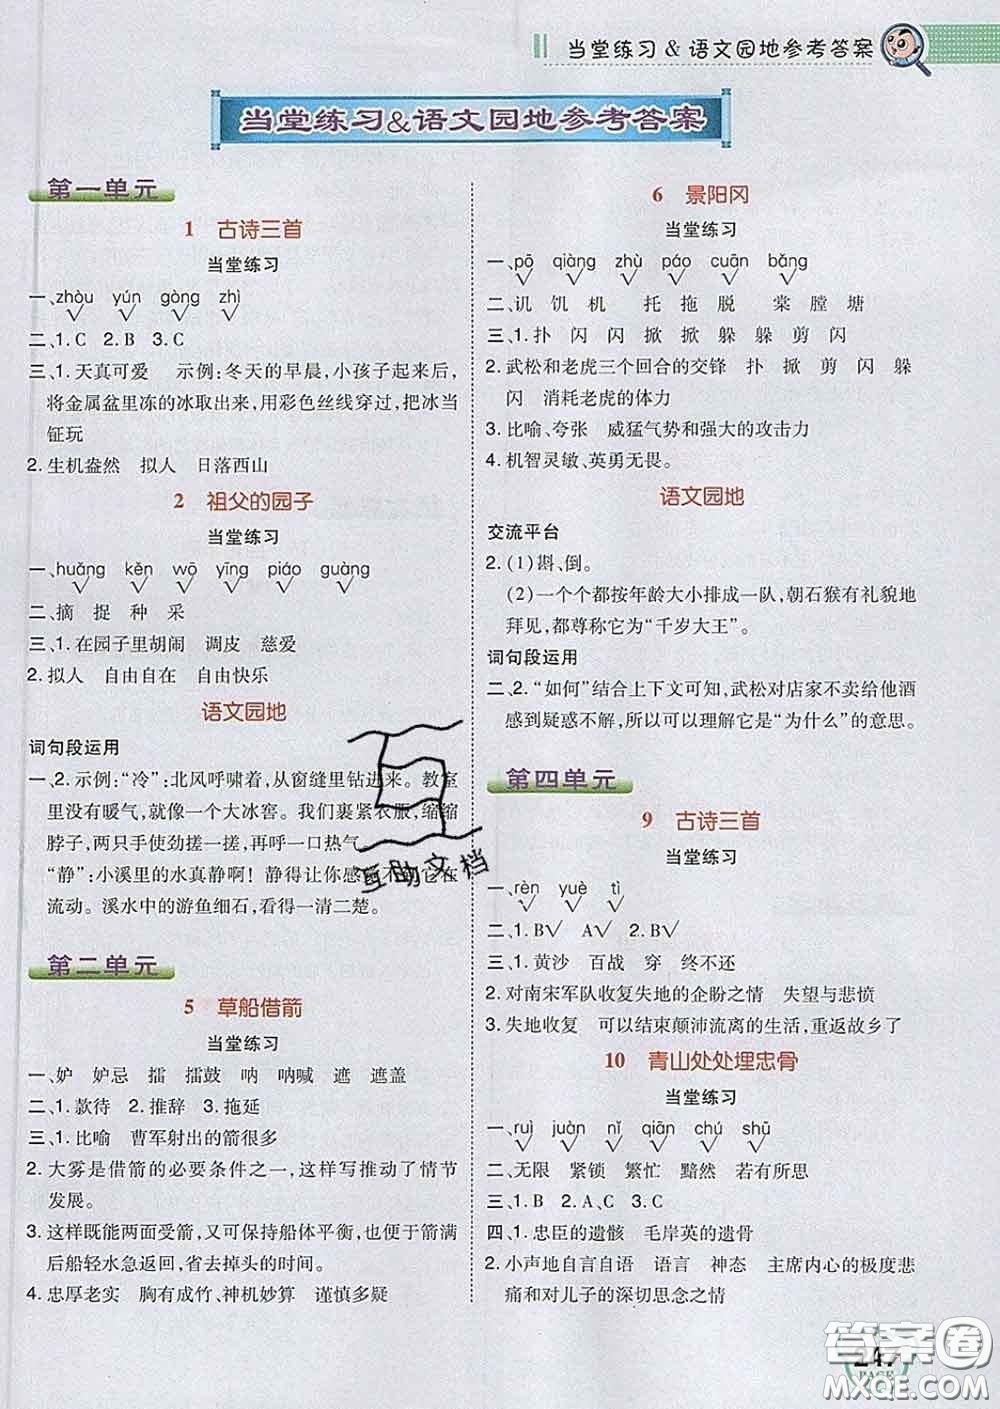 当堂练习 & 语文园地参考答案
当堂练习&语文园地参考答案
第一单元
1 古诗三首
当堂练习
一、zhòu yún gòng zhì
√ √
二、1. C 2. B 3. C
三、1. 天真可爱 示例:冬天的早晨,小孩子起来后,
将金属盆里冻的冰取出来,用彩色丝线穿过,把冰当
钲玩
2. 生机盎然 拟人 日落西山
2 祖父的园子
当堂练习
一、huǎng kěn wō yīng piáo guàng
√ √ √ √ √
二、摘 捉 种 采
三、1. 在园子里胡闹 调皮 慈爱
2. 拟人 自由自在 自由快乐
语文园地
词句段运用
一、2. 示例:“冷”:北风呼啸着,从窗缝里钻进来。教室
里没有暖气,就像一个大冰窖。我们裹紧衣服,缩缩
脖子,两只手使劲搓一搓,再呼一口热气。
“静”:小溪里的水真静啊! 静得让你感觉不到它在
流动。溪水中的游鱼细石,看得一清二楚。
第二单元
5 草船借箭
当堂练习
一、妒 妒忌 擂 擂鼓 呐 呐喊 遮 遮盖
二、1. 款待 2. 推辞 3. 拖延
三、1. 比喻 曹军射出的箭很多
2. 大雾是借箭的必要条件之一,这样写推动了情节
发展。
3. 这样既能两面受箭,又可保持船体平衡,也便于箭满
后船轻水急时,省去掉头的时间。
4. 忠厚老实 胸有成竹、神机妙算 谨慎多疑
6 景阳冈
当堂练习
一、pō qiàng zhù páo cuān bǎng
√ √ √ √ √
二、讥 饥 机 托 拖 脱 棠 膛 塘
三、1. 扑 闪 闪 掀 掀 躲 躲 剪 闪
2. 武松和老虎三个回合的交锋 扑 掀 剪 闪 躲
闪 消耗老虎的体力
3. 比喻、夸张 威猛气势和强大的攻击力
4. 机智灵敏、英勇无畏。
语文园地
交流平台
2. (1)斟、倒。
(2)一个个都按年龄大小排成一队,朝石猴有礼貌地
拜见,都尊称它为“千岁大王”。
词句段运用
二、2. “如何”结合上下文可知,武松对店家不卖给他酒
感到疑惑不解,所以可以理解它是“为什么”的意思。
第四单元
9 古诗三首
当堂练习
一、rèn yuè tì
√ √
二、1. B√ A√ 2. B√
三、1. 黄沙 百战 穿 终不还
2. 对南宋军队收复失地的企盼之情 失望与悲愤
3. 失地收复 可以结束颠沛流离的生活,重返故乡了
10 青山处处埋忠骨
当堂练习
一、ruì juàn nǐ qiān chú shū
√ √ √ √ √
二、无限 紧锁 繁忙 黯然 若有所思
三、1. B 2. A、C 3. C
四、1. 忠臣的遗骸 毛岸英的遗骨
2. 小声地自言自语 语言 神态 主席内心的极度悲
痛和对儿子的深切思念之情
互助文档
答案圈
247
PAGE
MXQE.COM